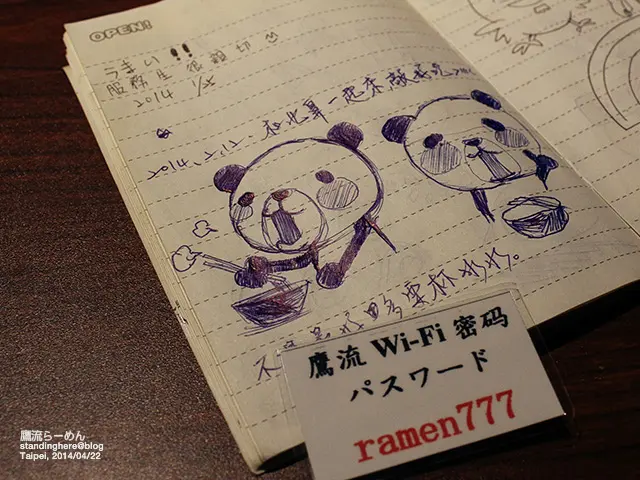 OPEN!
うまい!!
服務生很親切
2014 1/25
2014.2.12. 和北鼻一起來
要杯冰水。
鷹流 Wi-Fi 密码
パスワード
ramen777
鷹流らーめん
standinghere@blog
Taipei, 2014/04/22